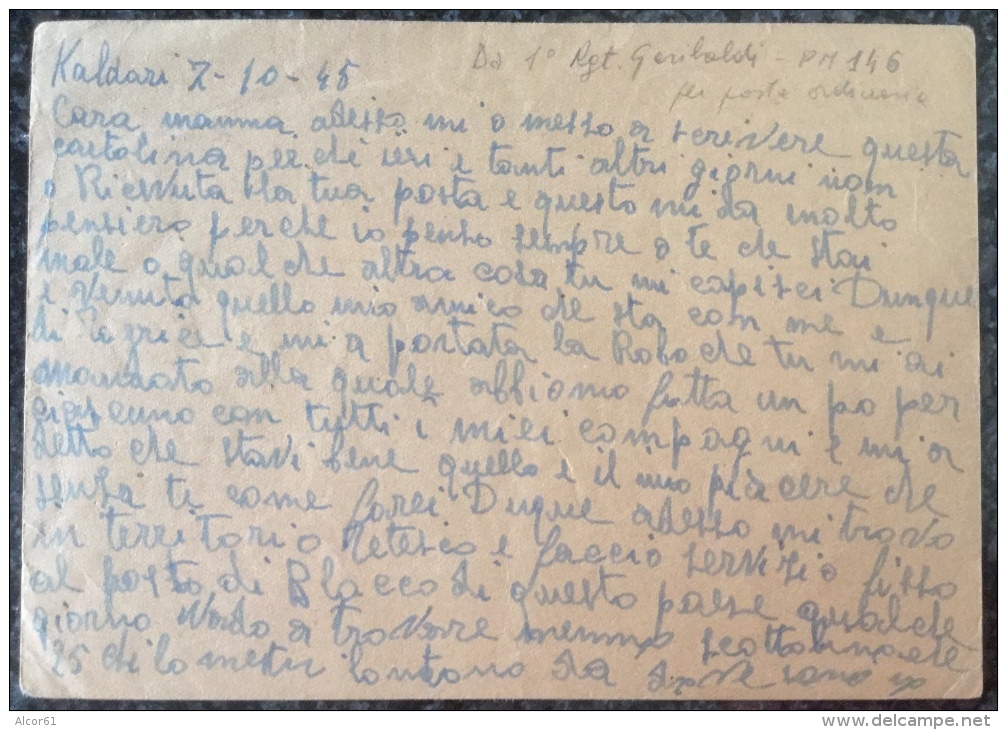 Kaldari 7-10-45
Da 1° Rgt. Garibaldi - PM 146
per posta ordinaria
Cara mamma adesso mi o messo a scrivere questa
cartolina perchi ieri e tanti altri giorni non
o Ricevuta la tua posta e questo mi da molto
pensiero perche io penso sempre a te che stai
male o qualche altra cosa tu mi capisci Dunque
e Venuto quello mio amico che sta con me e
di e mi a portata la Roba che tu mi ai
mandato alla quale abbiamo fatta un po per
con tutti i miei compagni e mi a
detto che stavi bene quello e il mio piacere che
senza te come farei Duque adesso mi trovo
in territorio Tetesco e faccio servizio fisso
al posto di Blacco di questo paese qualche
giorno Vado a trovare
25 chilometri lontano da
Alcor61
www.delcampe.net